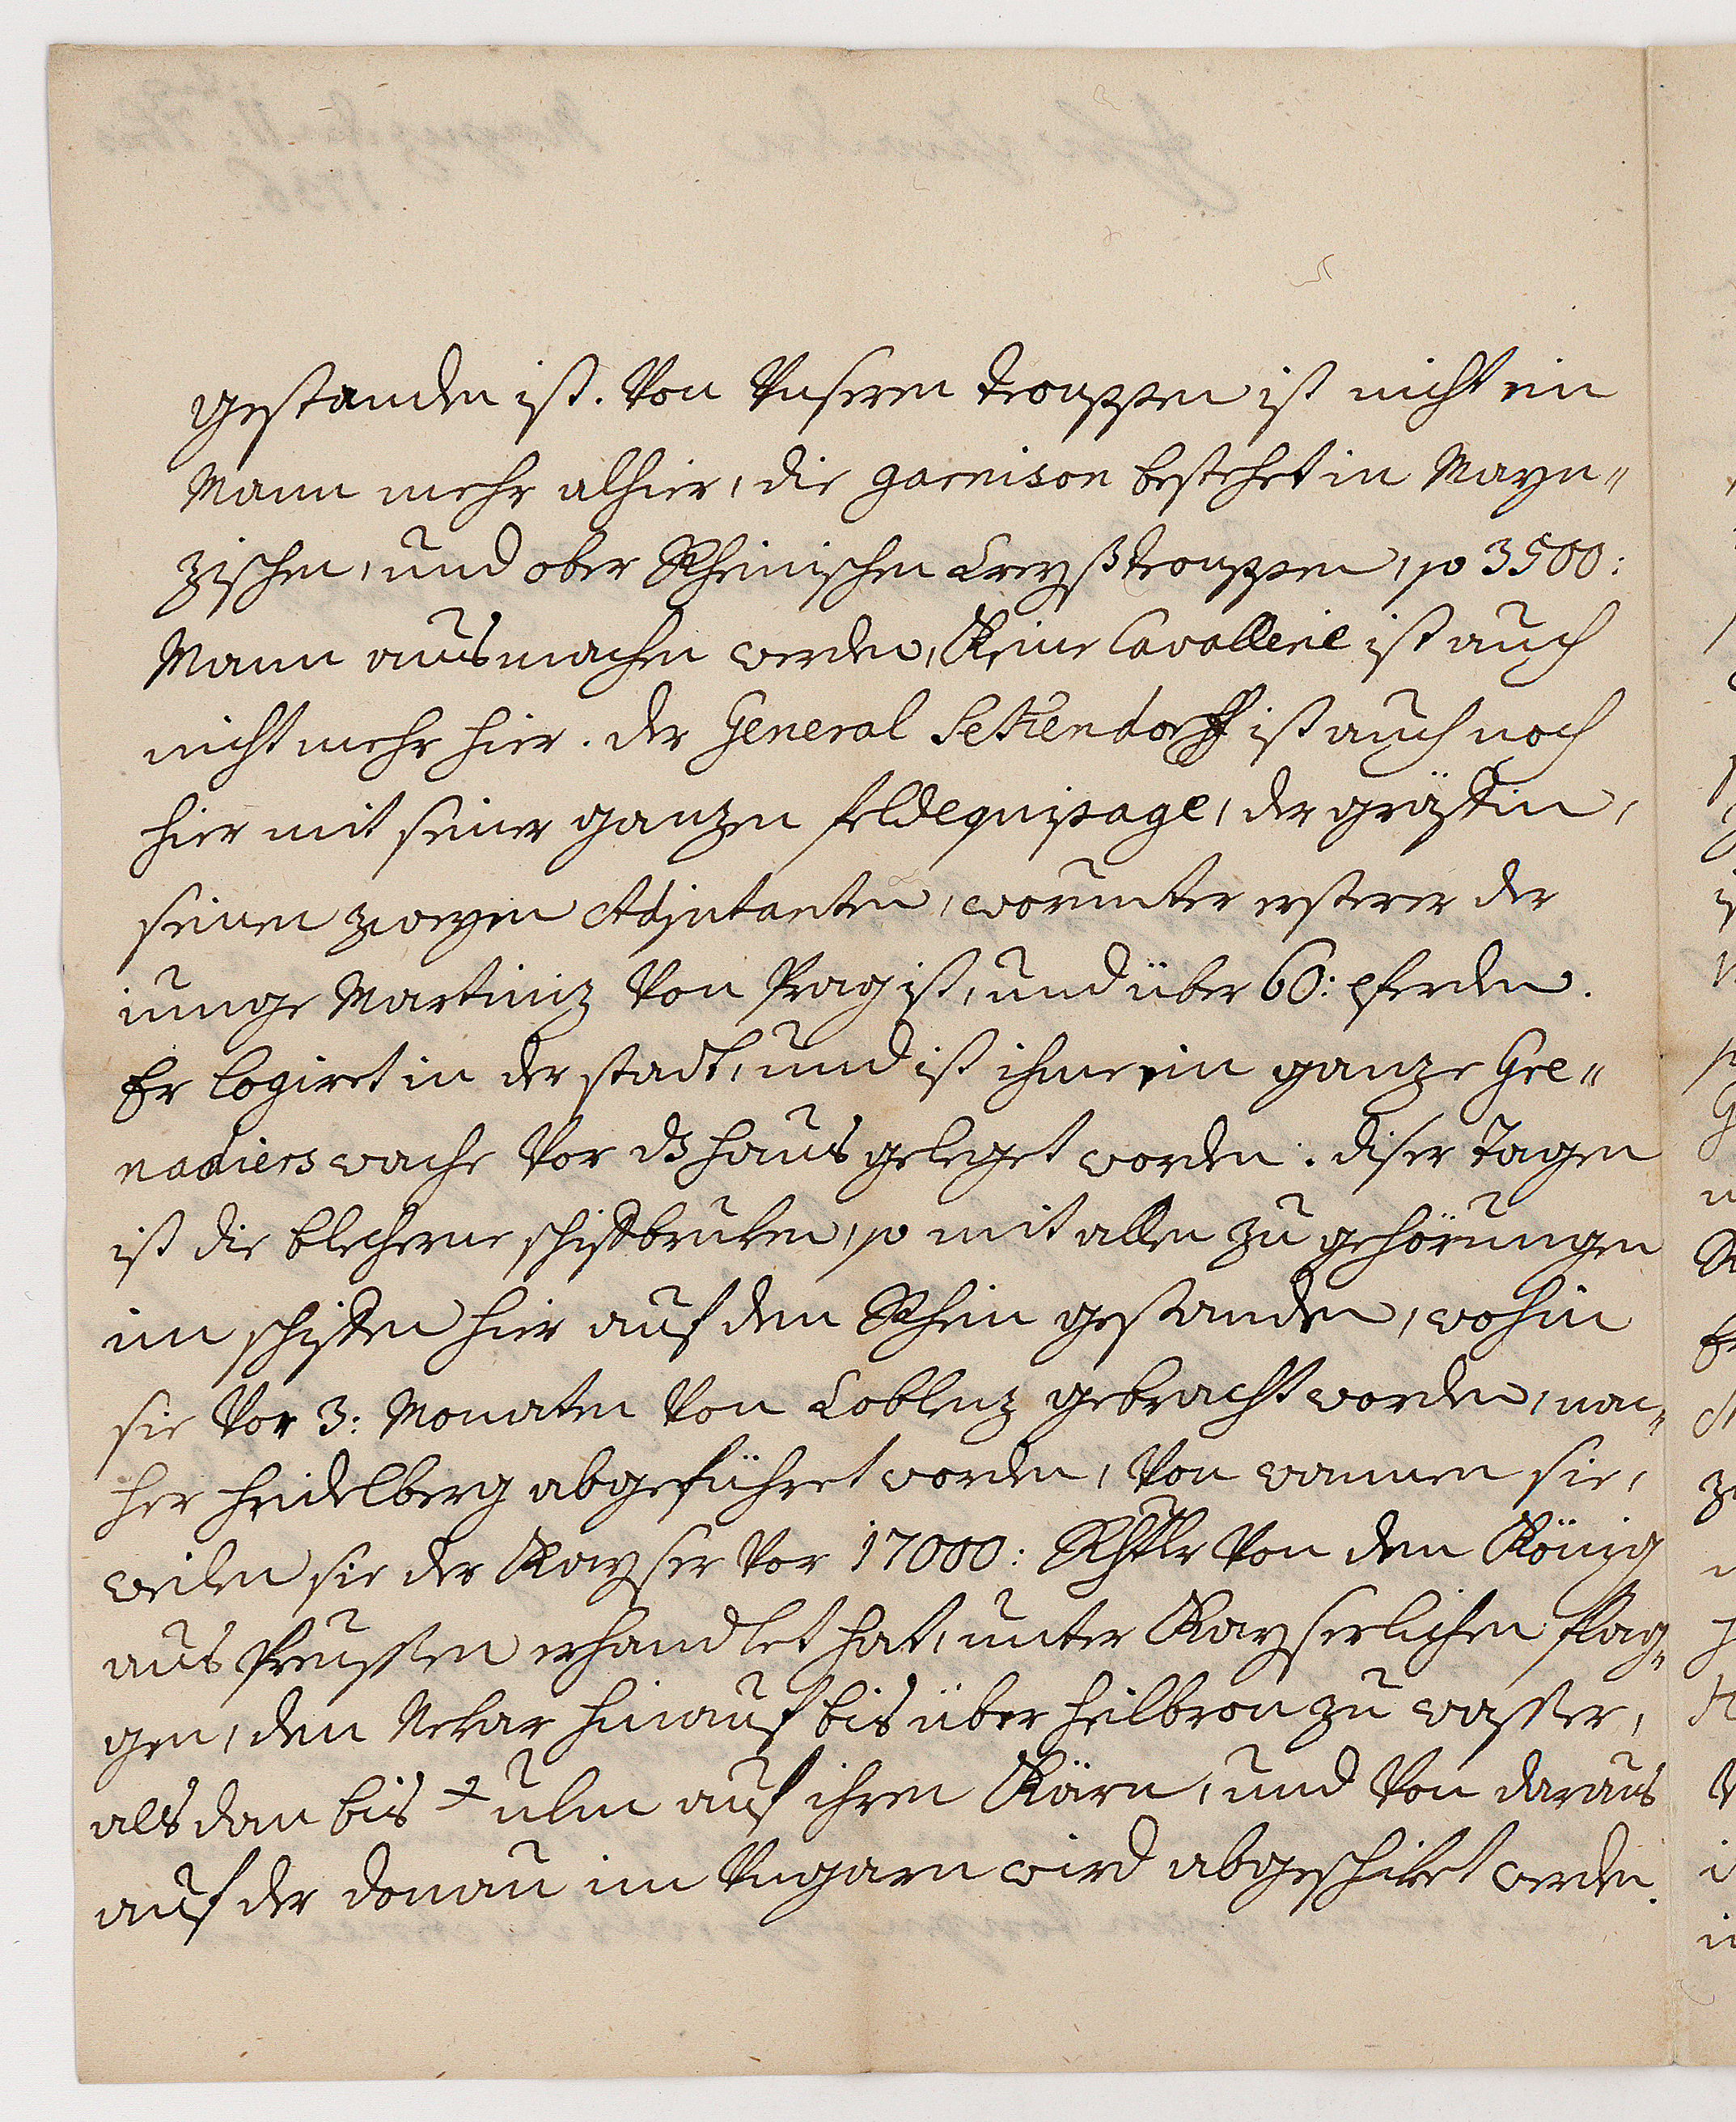 gestanden ist. Von Unseren trouppen ist nicht ein
Mann mehr alhier, die garnison bestehet in Mayn=
zischen, und ober Rheinischen Creyß trouppen, so 3500:
Mann ausmachen werden, Keine Cavallerie ist auch
nicht mehr hier. der General Sekendorff ist auch noch
hier mit seiner ganzen feldequipage, der gräffin,
seinen zweyen Adjutanten, worunter ersterer der
iunge Martiniz Von Prag ist, und über 60: pferden.
Er logiret in der stadt, und ist ihme ein ganze Gre=
nadiers wache Vor ds haus geleget worden. diser Tagen
ist die blecherne schiffbruken, so mit allen zu gehörungen
in schiffen hier auf dem Rhein gestanden, wohin
sie Vor 3: Monaten Von Coblenz gebracht worden, nac=
her heidelberg abgeführet worden, Von wannen sie,
weilen sie der Kayser Vor 17000: Rhtlr Von dem König
aus Preussen erhandlet hat, unter Kayserlichen flag=
gen, den Nekar hinauf bis über heilbron zu wasser,
als dan bis ulm auf ihren Kärn, und Von daraus
auf der donau in Ungarn wird abgeschiket werden.